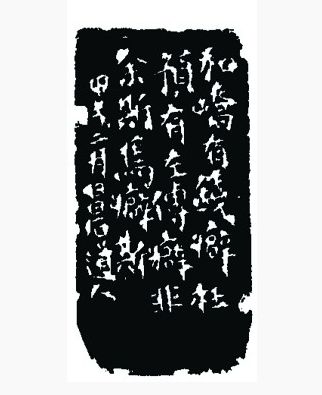 和嶠有錢癖杜
預有左傳癖非
余斯馬癖斯
甲戌二月道人